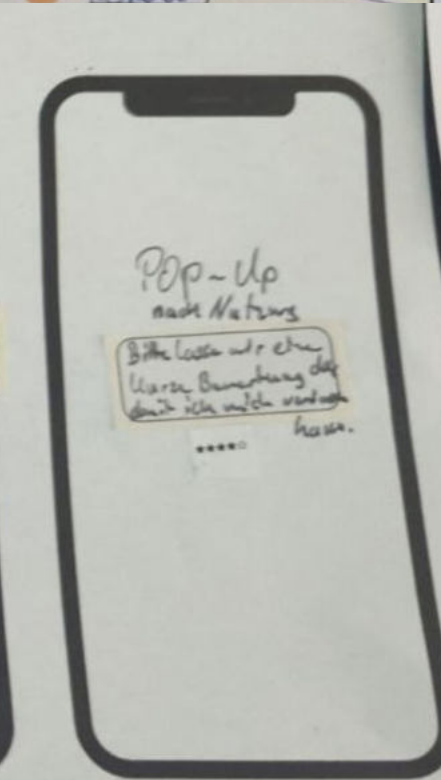 POp-Up
nach Nutzung
Bitte lasse mir eine
kurze Bewertung da
damit ich mich verbessern
kann.